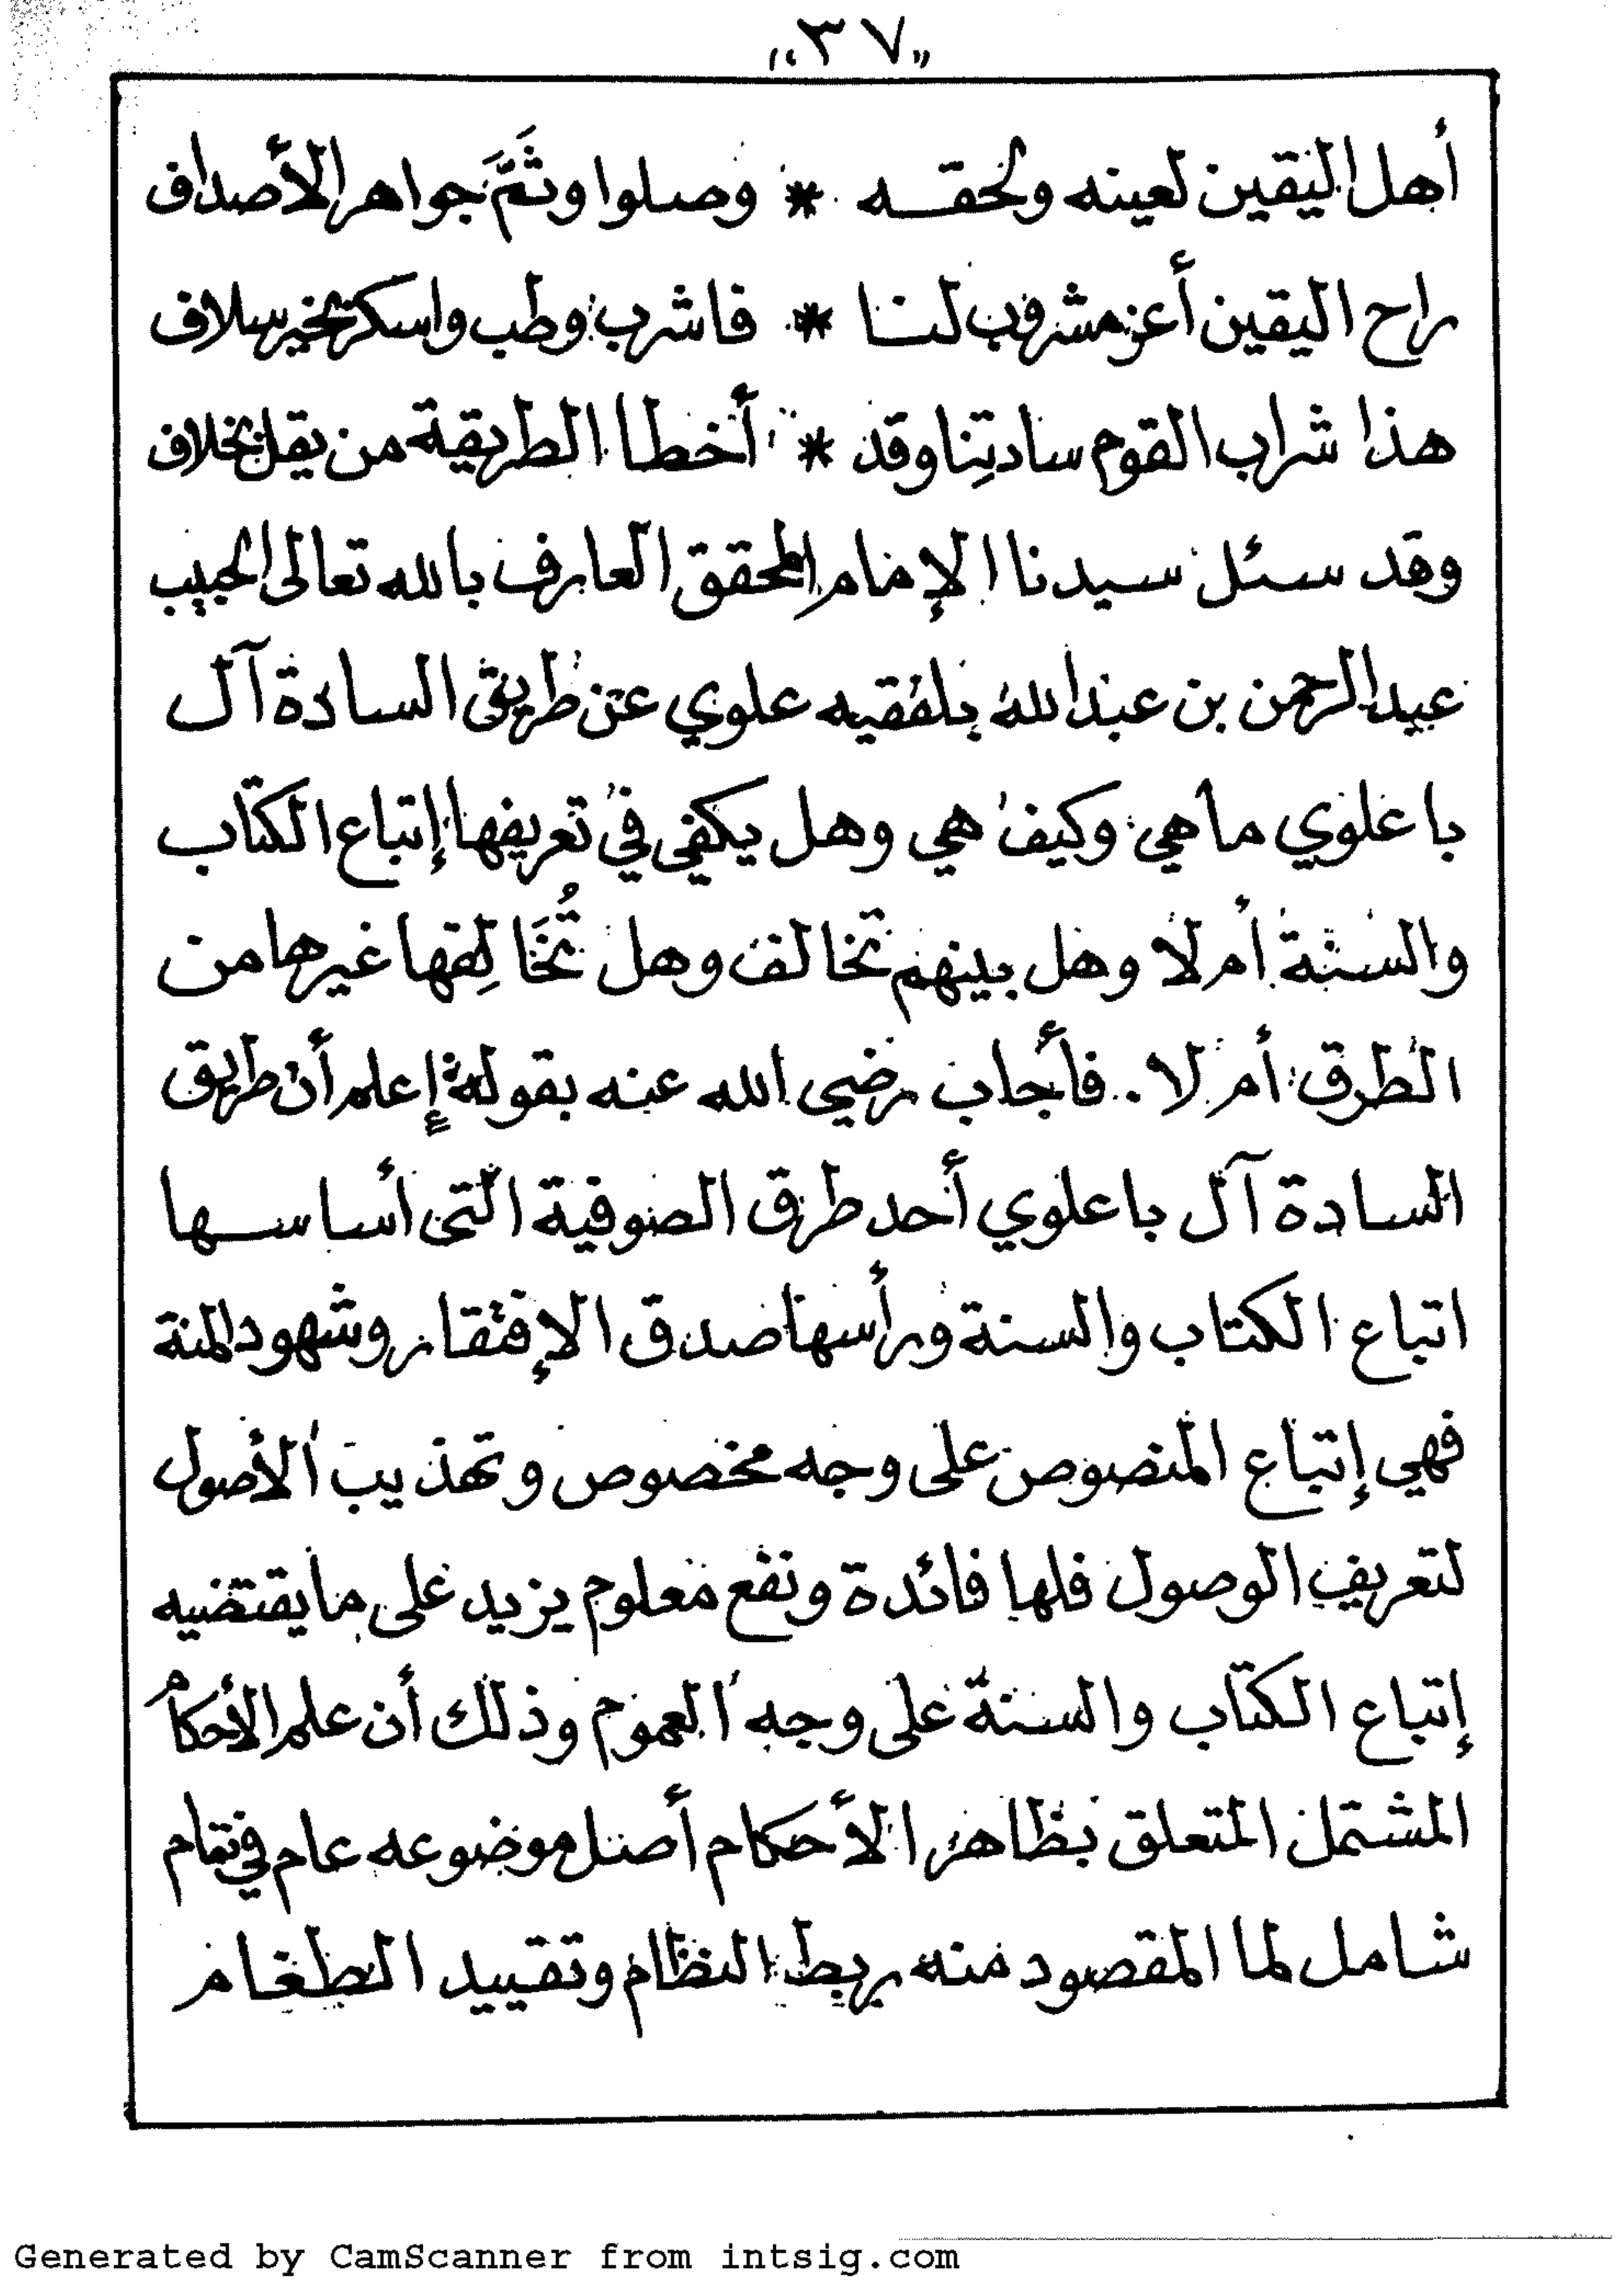 "٣٧"
أهل اليقين لعينه ولحقه * وصلوا وثَمَّ جواهر الأصداف
راح اليقين أعز مشروب لنا * فاشرب وطب واسكر بخير سلاف
هذا شراب القوم سادتِنا وقد * أخطا الطريقة من يقل بخلاف
وقد سئل سيدنا الإمام المحقق العارف بالله تعالى الحبيب
عبدالرحمن بن عبدالله بلفقيه علوي عن طريق السادة آل
باعلوي ماهي وكيف هي وهل يكفي في تعريفها إتباع الكتاب
والسنة أم لا وهل بينهم تخالف وهل تُخَالِفها غيرها من
الطرق أم لا . فأجاب رضي الله عنه بقوله إعلم أن طريق
السادة آل باعلوي أحد طرق الصوفية التي أساسها
اتباع الكتاب والسنة ورأسها صدق الإفتقار وشهود المنة
فهي إتباع المنصوص على وجه مخصوص وتهذيب الأصول
لتعريف الوصول فلها فائدة ونفع معلوم يزيد على ما يقتضيه
إتباع الكتاب والسنة على وجه العموم وذلك أن علم الأحكام
المشتمل المتعلق بظاهر الأحكام أصل موضوعه عام في تمام
شامل لما المقصود منه ربط النظام وتقييد الطغام
Generated by CamScanner from intsig.com